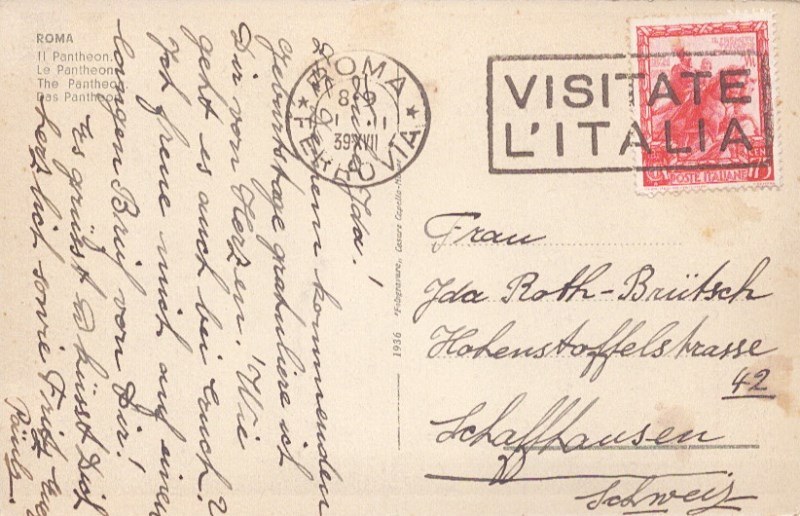 ROMA
Il Pantheon.
Le Pantheon.
The Pantheon.
Das Pantheon.
ROMA
8-9
39XVII
FERROVIA
VISITATE
L'ITALIA
POSTE ITALIANE
Ida!
Zu Deinem kommenden
Geburtstage gratuliere ich
Dir von Herzen. Wie
geht es auch bei Euch?
Ich freue mich auf einen
langen Brief von Dir!
Es grüsst & küsst Dich
herzlich sowie Fritz
1936
Frau
Ida Roth-Brütsch
Hohenstoffelstrasse
42
Schaffhausen
Schweiz